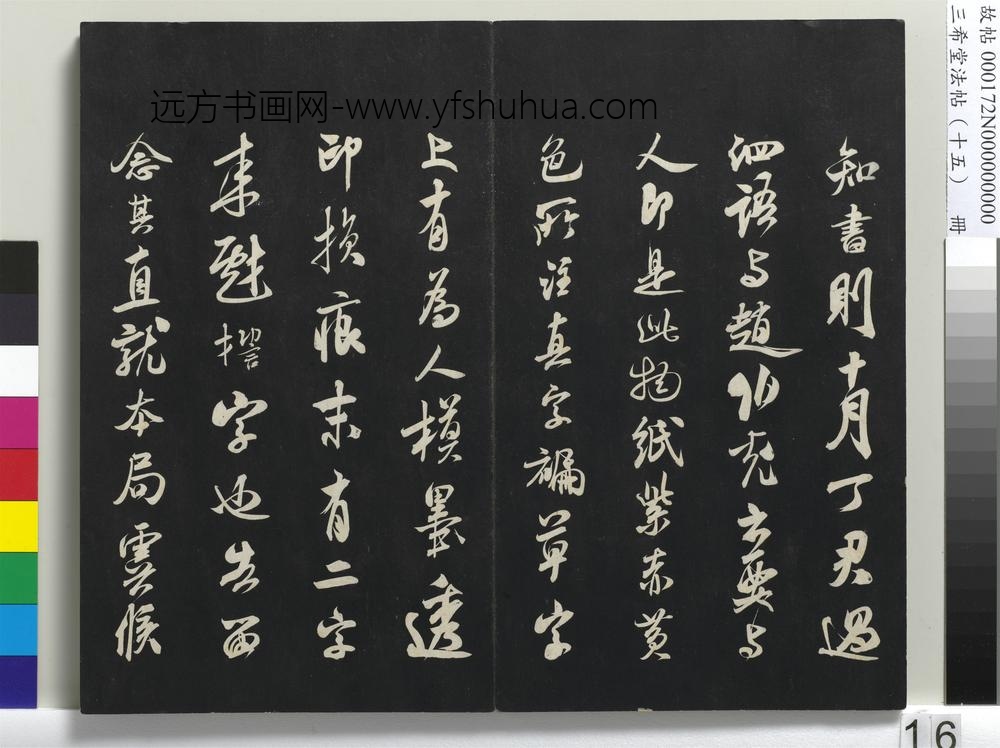 故帖 000172N000000000
三希堂法帖（十五） 冊
远方书画网-www.yfshuhua.com
知書則十月丁君過
泗語与趙伯充云要与
人即是此物紙紫赤黄
色所注真字褊草字
上有為人模墨透
印損痕末有二字
来字也告留
念其直就本局虞候
16